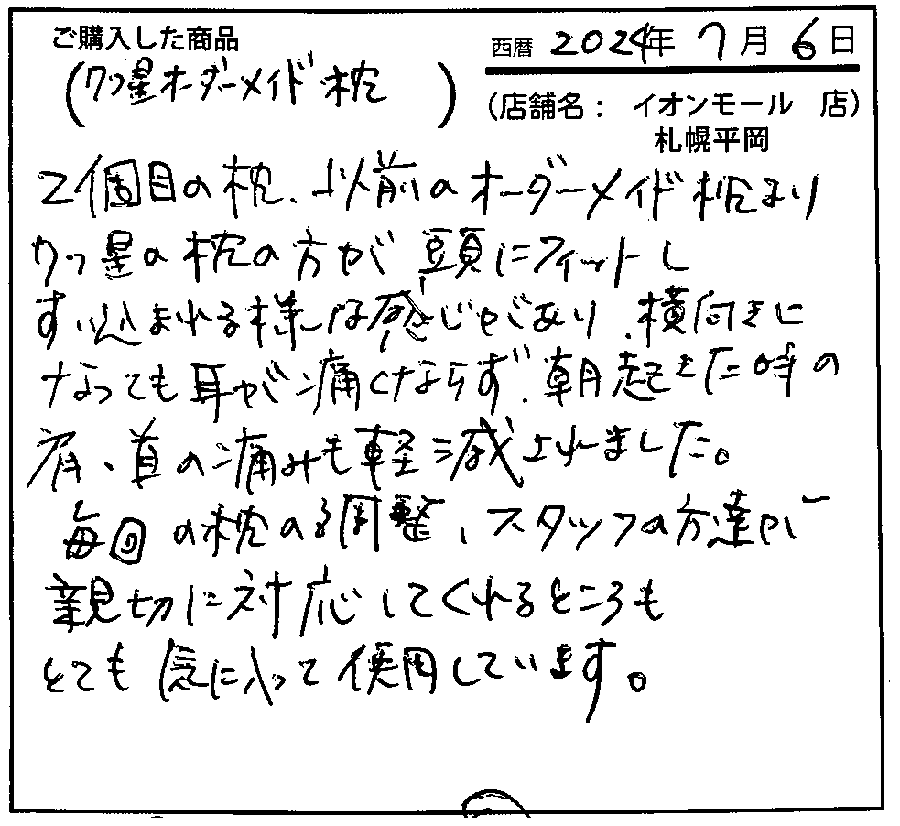 ご購入した商品
(7つ星オーダーメイド枕)
西暦 2024年 7月 6日
(店舗名: イオンモール 店)
札幌平岡
2個目の枕、以前のオーダーメイド枕より
7つ星の枕の方が頭にフィットし
すい込まれる様な感じがあり、横向きに
なっても耳が痛くならず、朝起きた時の
肩、首の痛みも軽減されました。
毎回の枕の調整、スタッフの方達が
親切に対応してくれるところも
とても気に入って使用しています。